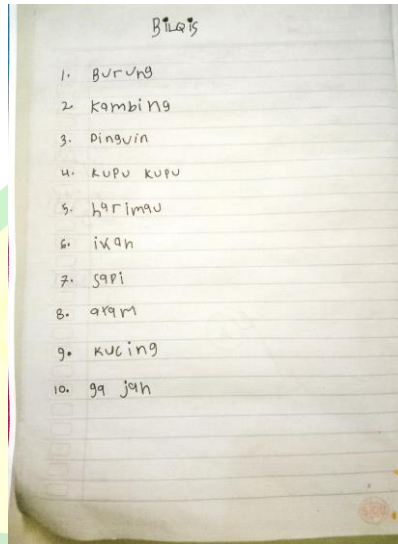 BiLQis
1. Burung
2 Kambing
3. Pinguin
4. Kupu Kupu
5. harimau
6. ikan
7. sapi
8. ayam
9. Kucing
10. ga jah